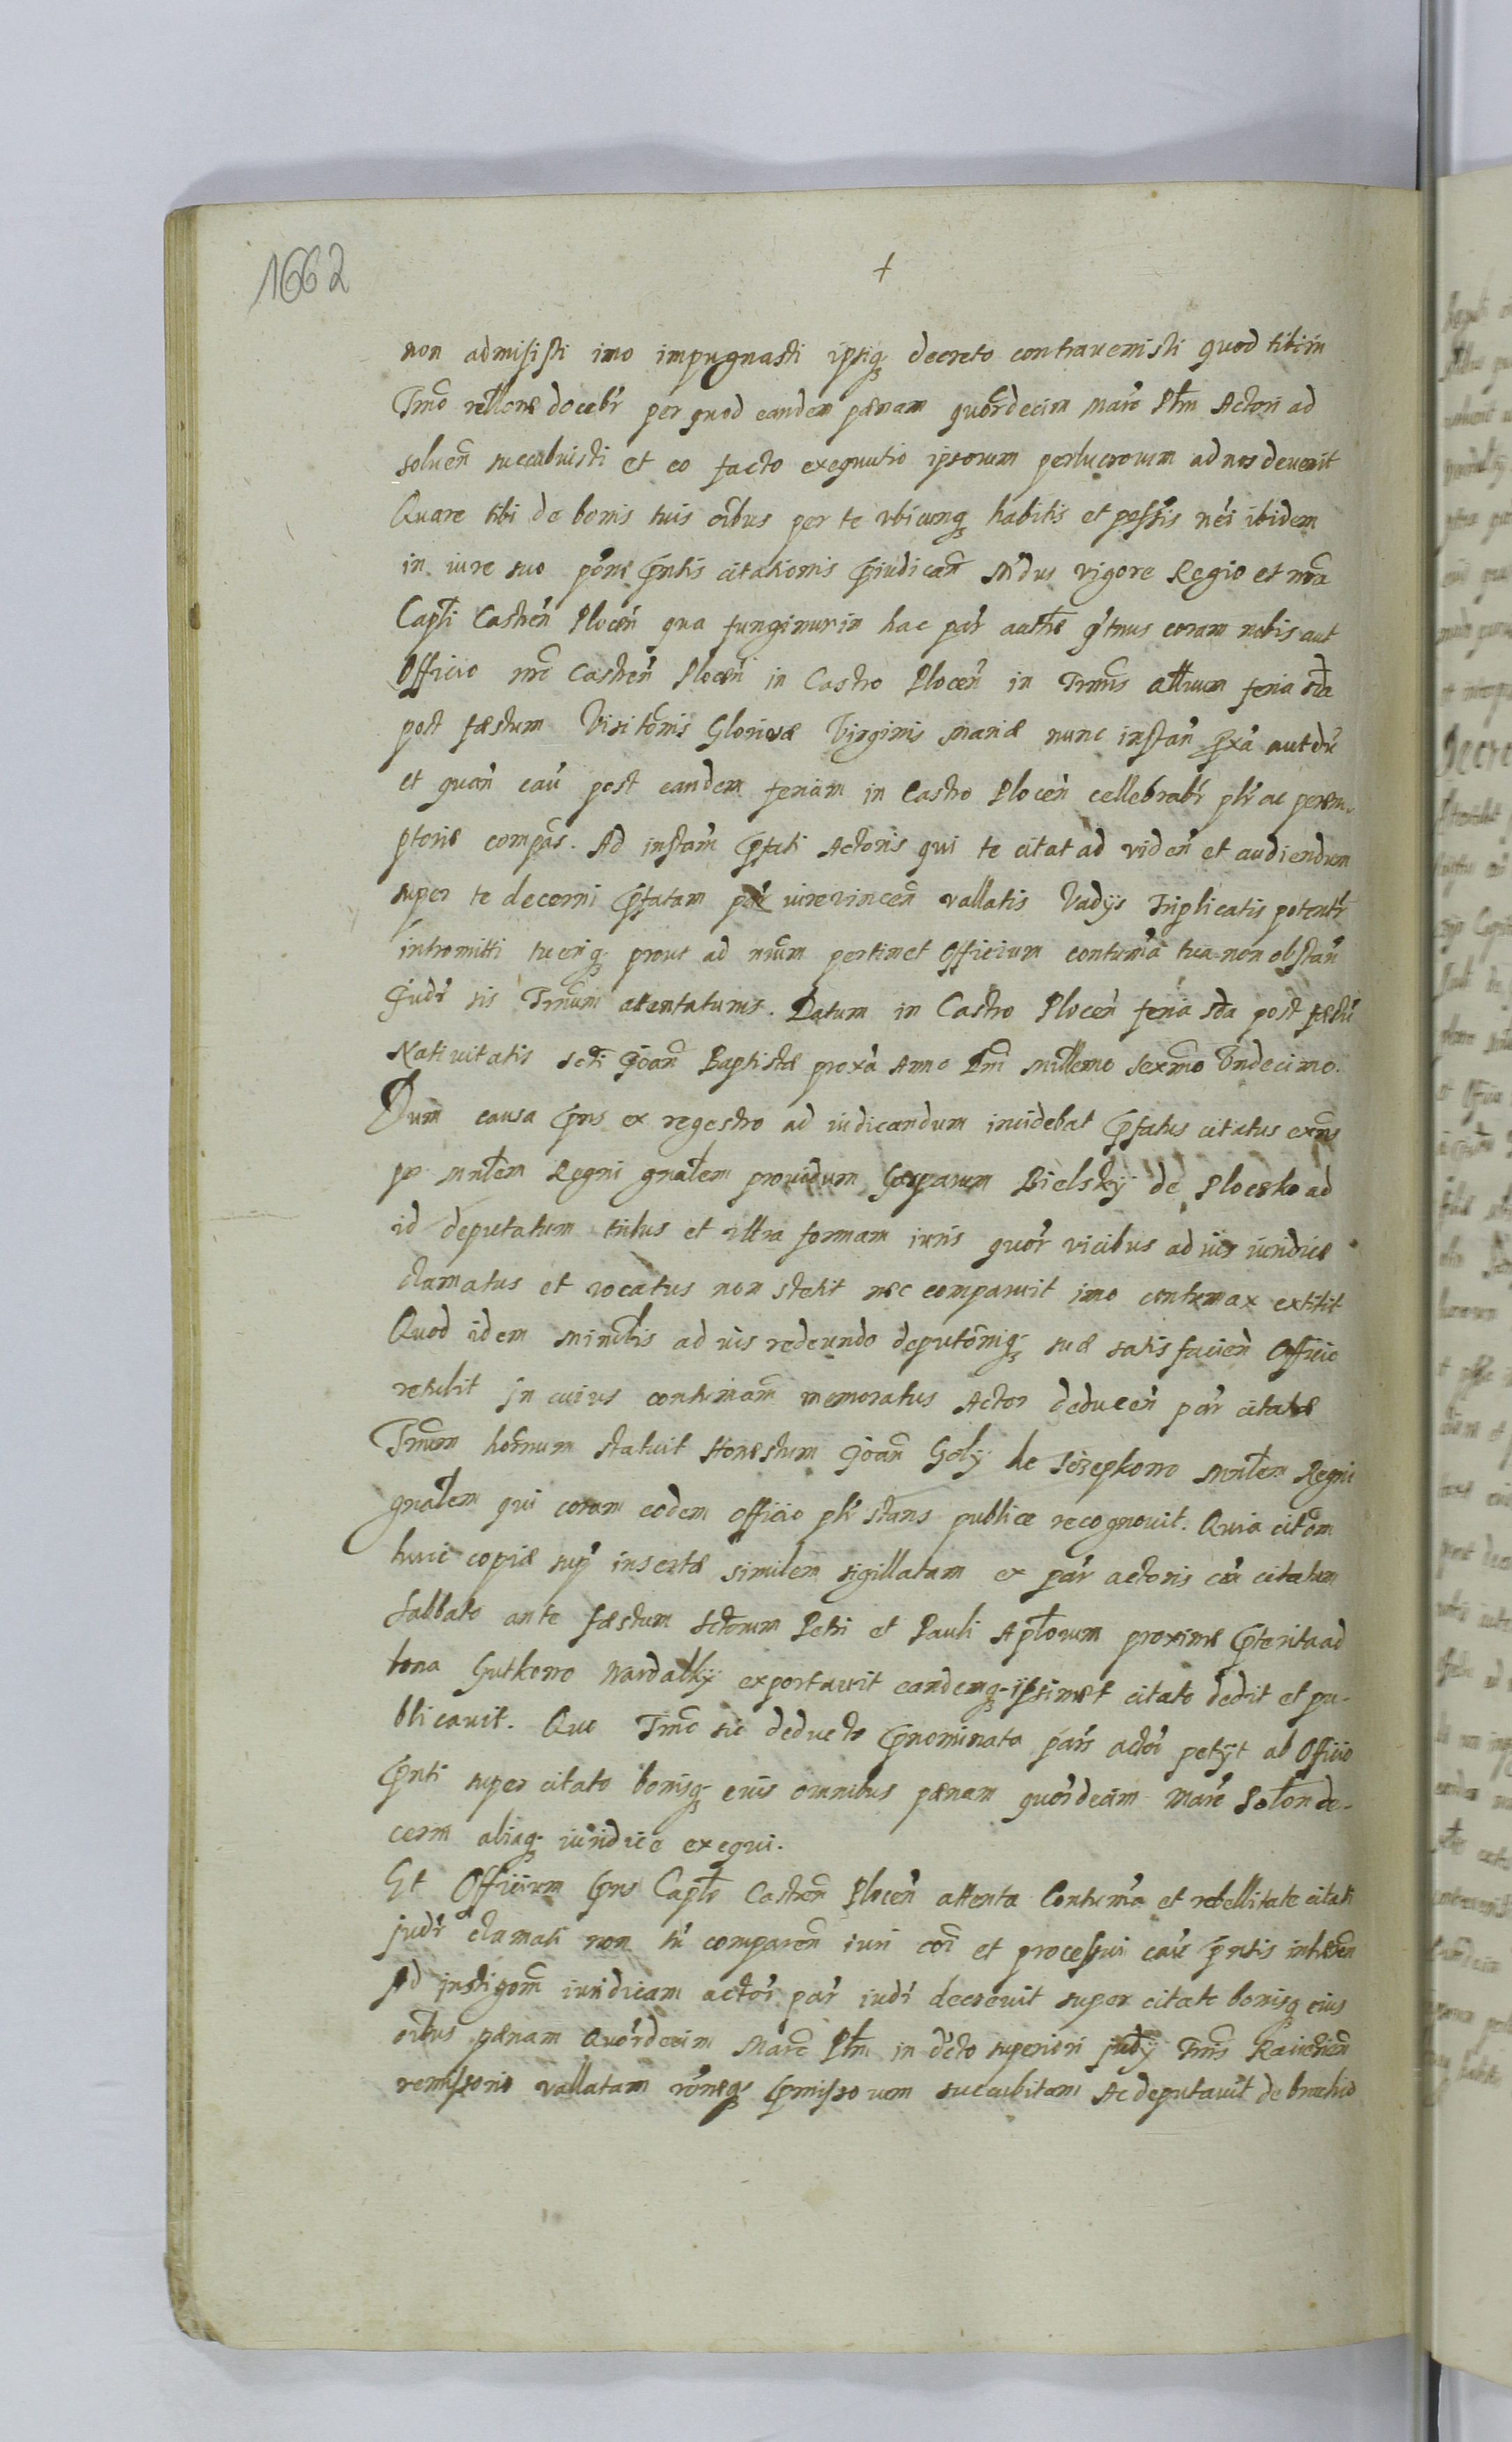 1662
+
non admisisti imo impugnasti ipsiq decreto contrauenisti quod tibi in
Tmo rellone docebr per quod eandem pænam quordecim Marc Plm Actori ad
soluen succubuisti et eo facto exequutio ipsorum perlucrorum ad nos deuenit
Quare tibi de bonis tuis oibus per te vbicunq habitis et possis nri ibidem
in iure suo pone pntis citationis piudican Mdus vigore Regio et nra
Capli Castren Plocen qua fungimur in hac par authe qtnus coram nobis aut
Officio nro Castren Plocen in Castro Plocen in Trmis attium feria sda
post fæstum Visitonis Gloriosæ Virginis Mariæ nunc instan pxa aut du
et quan cau post eandem feriam in Castro Plocen cellebrabr plr ac perem
ptorie compas. Ad instam pfati Actoris qui te citat ad viden et audiendum
super te decerni pfatam iure vincen vallatis Vadys Triplicatis potentr
intromitti tueriq prout ad nrum pertinet Officium contuma tua non obstan
Judr sis Trnum attentaturus. Datum in Castro Plocen feria sda post fæstu
Natiuitatis scti Joan Baptistæ proxa Anno Dni Millemo sexmo Vndecimo.
Dum causa pns ex regestro ad iudicandum incidebat pfatus citatus
pr Mnlem Regni gnalem prouidum Gasparum Bielsky de Plocsko ad
id deputatum tribus et vltra formam iuris quor vicibus ad ius iuridice
clamatus et vocatus non stetit nec comparuit imo contumax extitit
Quod idem Minlis ad ius redeundo deputoniq suæ satisfacien Officio
retulit In cuius contumam memoratus Actor deducen par citatæ
Tmum hornum statuit Honestum Joan Goly de Jozepkowo Mnlem Regni
gnalem qui coram eodem officio plr stans publice recognouit. Quia citom
huic copiæ sup insertæ similem sigillatam ex par actoris con citatum
sabbato ante fæstum sctorum Petri et Pauli Aplorum proxime pterita ad
bona Gutkowo Wardalky exportauit eandemq ipsimet citato dedit et pu-
blicauit. Quo Tmo sic deducto pnominata pars actor petyt ab Officio
pnti super citato bonisq eius omnibus pænam quordecim Marc Polon de-
cerni aliaq iuridice exequi.
Et Officium pns Caple Castren Plocen attenta Contuma et rebellitate citati
judr clamati non tn comparen iuri coi et processui cau pntis inhæren
Ad instigom iuridicam actor par iudr decreuit super citato bonisq eius
oibus pænam Quordecim Marc Plm in dcto superiori judy Tmis Raciazen
remissorio vallatam roneq pmissorum succubitam Ac deputauit de brachio